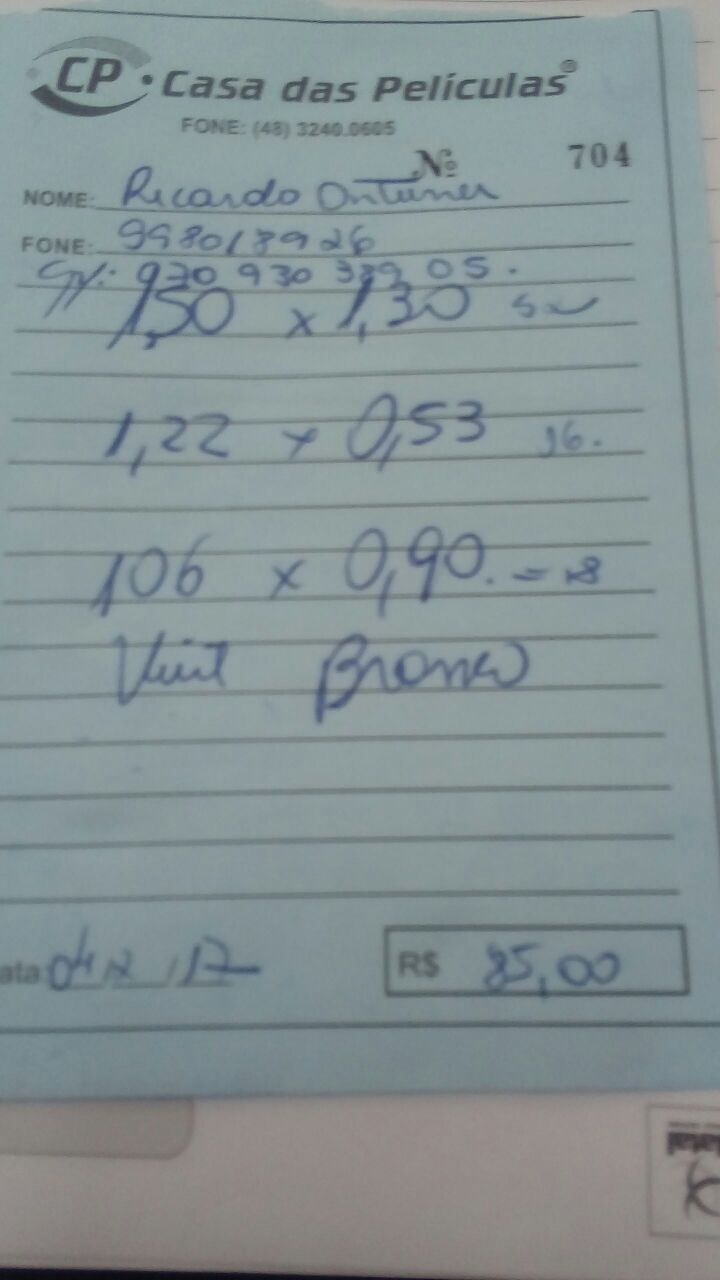 CP · Casa das Películas®
FONE: (48) 3240.0605
Nº 704
NOME: Ricardo Antunes
FONE: 998018926
930 339 05.
1,50 x 1,30
1,22 x 0,53 16.
106 x 0,90. = 18
ata 04 12 17
R$ 85,00